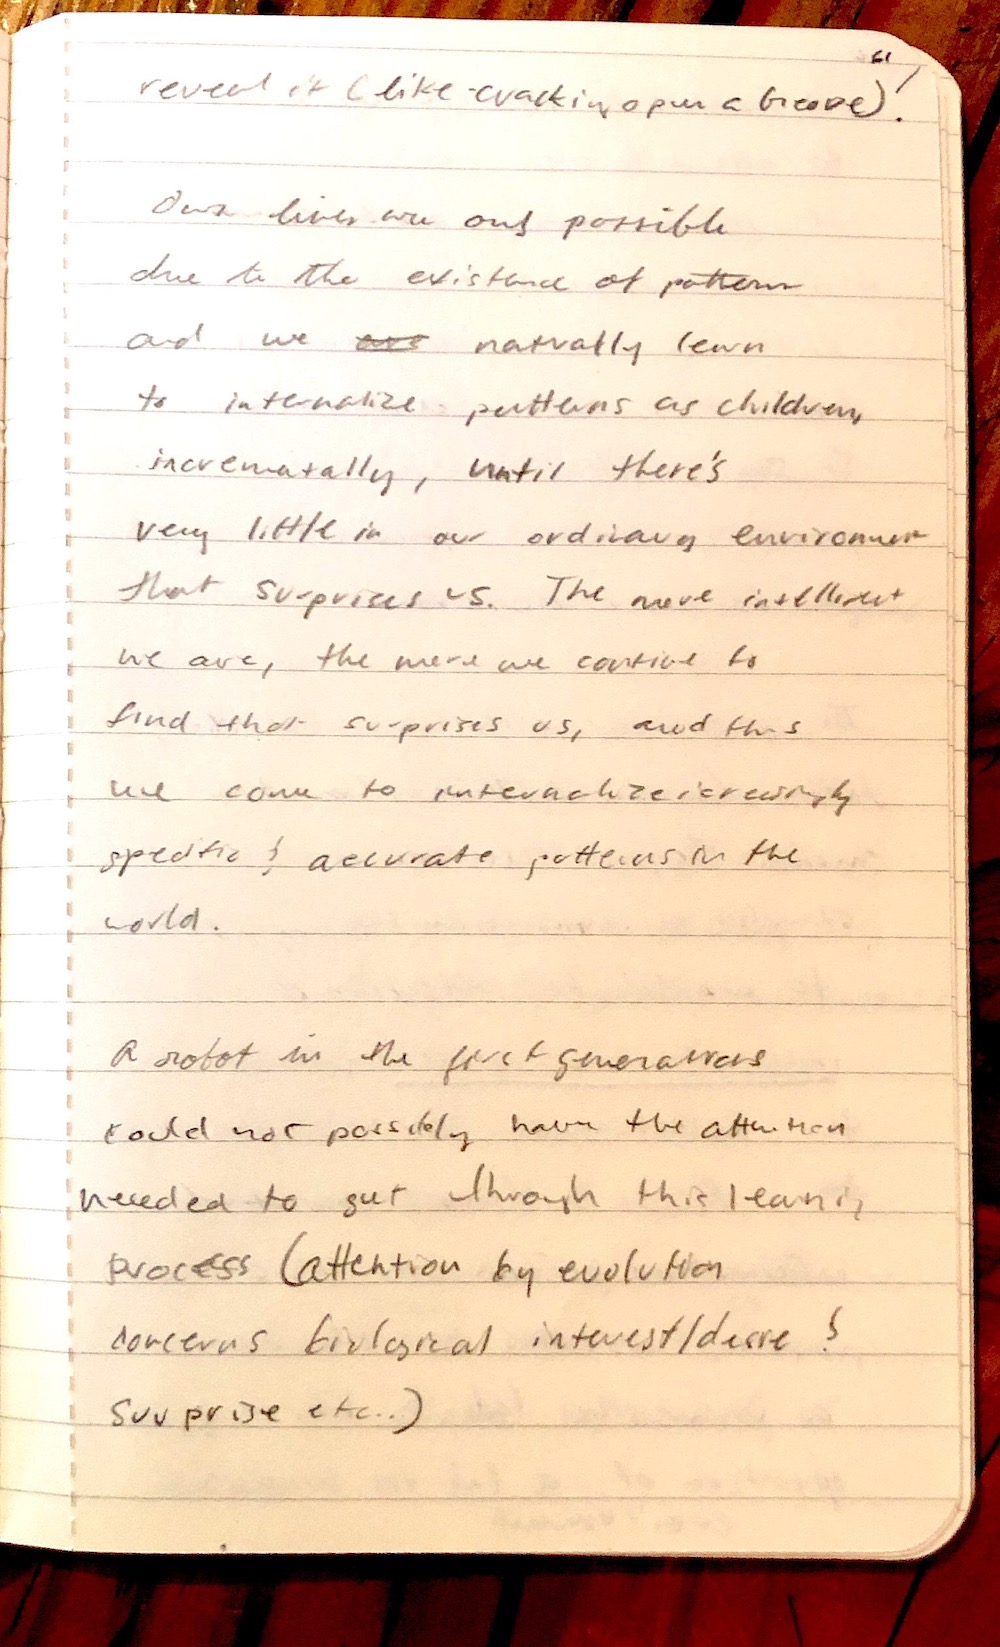 61
reveal it (like cracking open a geode)!
Our lives are only possible
due to the existence of patterns
and we are naturally learn
to internalize patterns as children,
incrementally, until there's
very little in our ordinary environment
that surprises us. The more intelligent
we are, the more we continue to
find that surprises us, and thus
we come to internalize increasingly
specific & accurate patterns in the
world.
A robot in the first generations
could not possibly have the attention
needed to get through this learning
process (attention by evolution
concerns biological interest/desire &
surprise etc..)